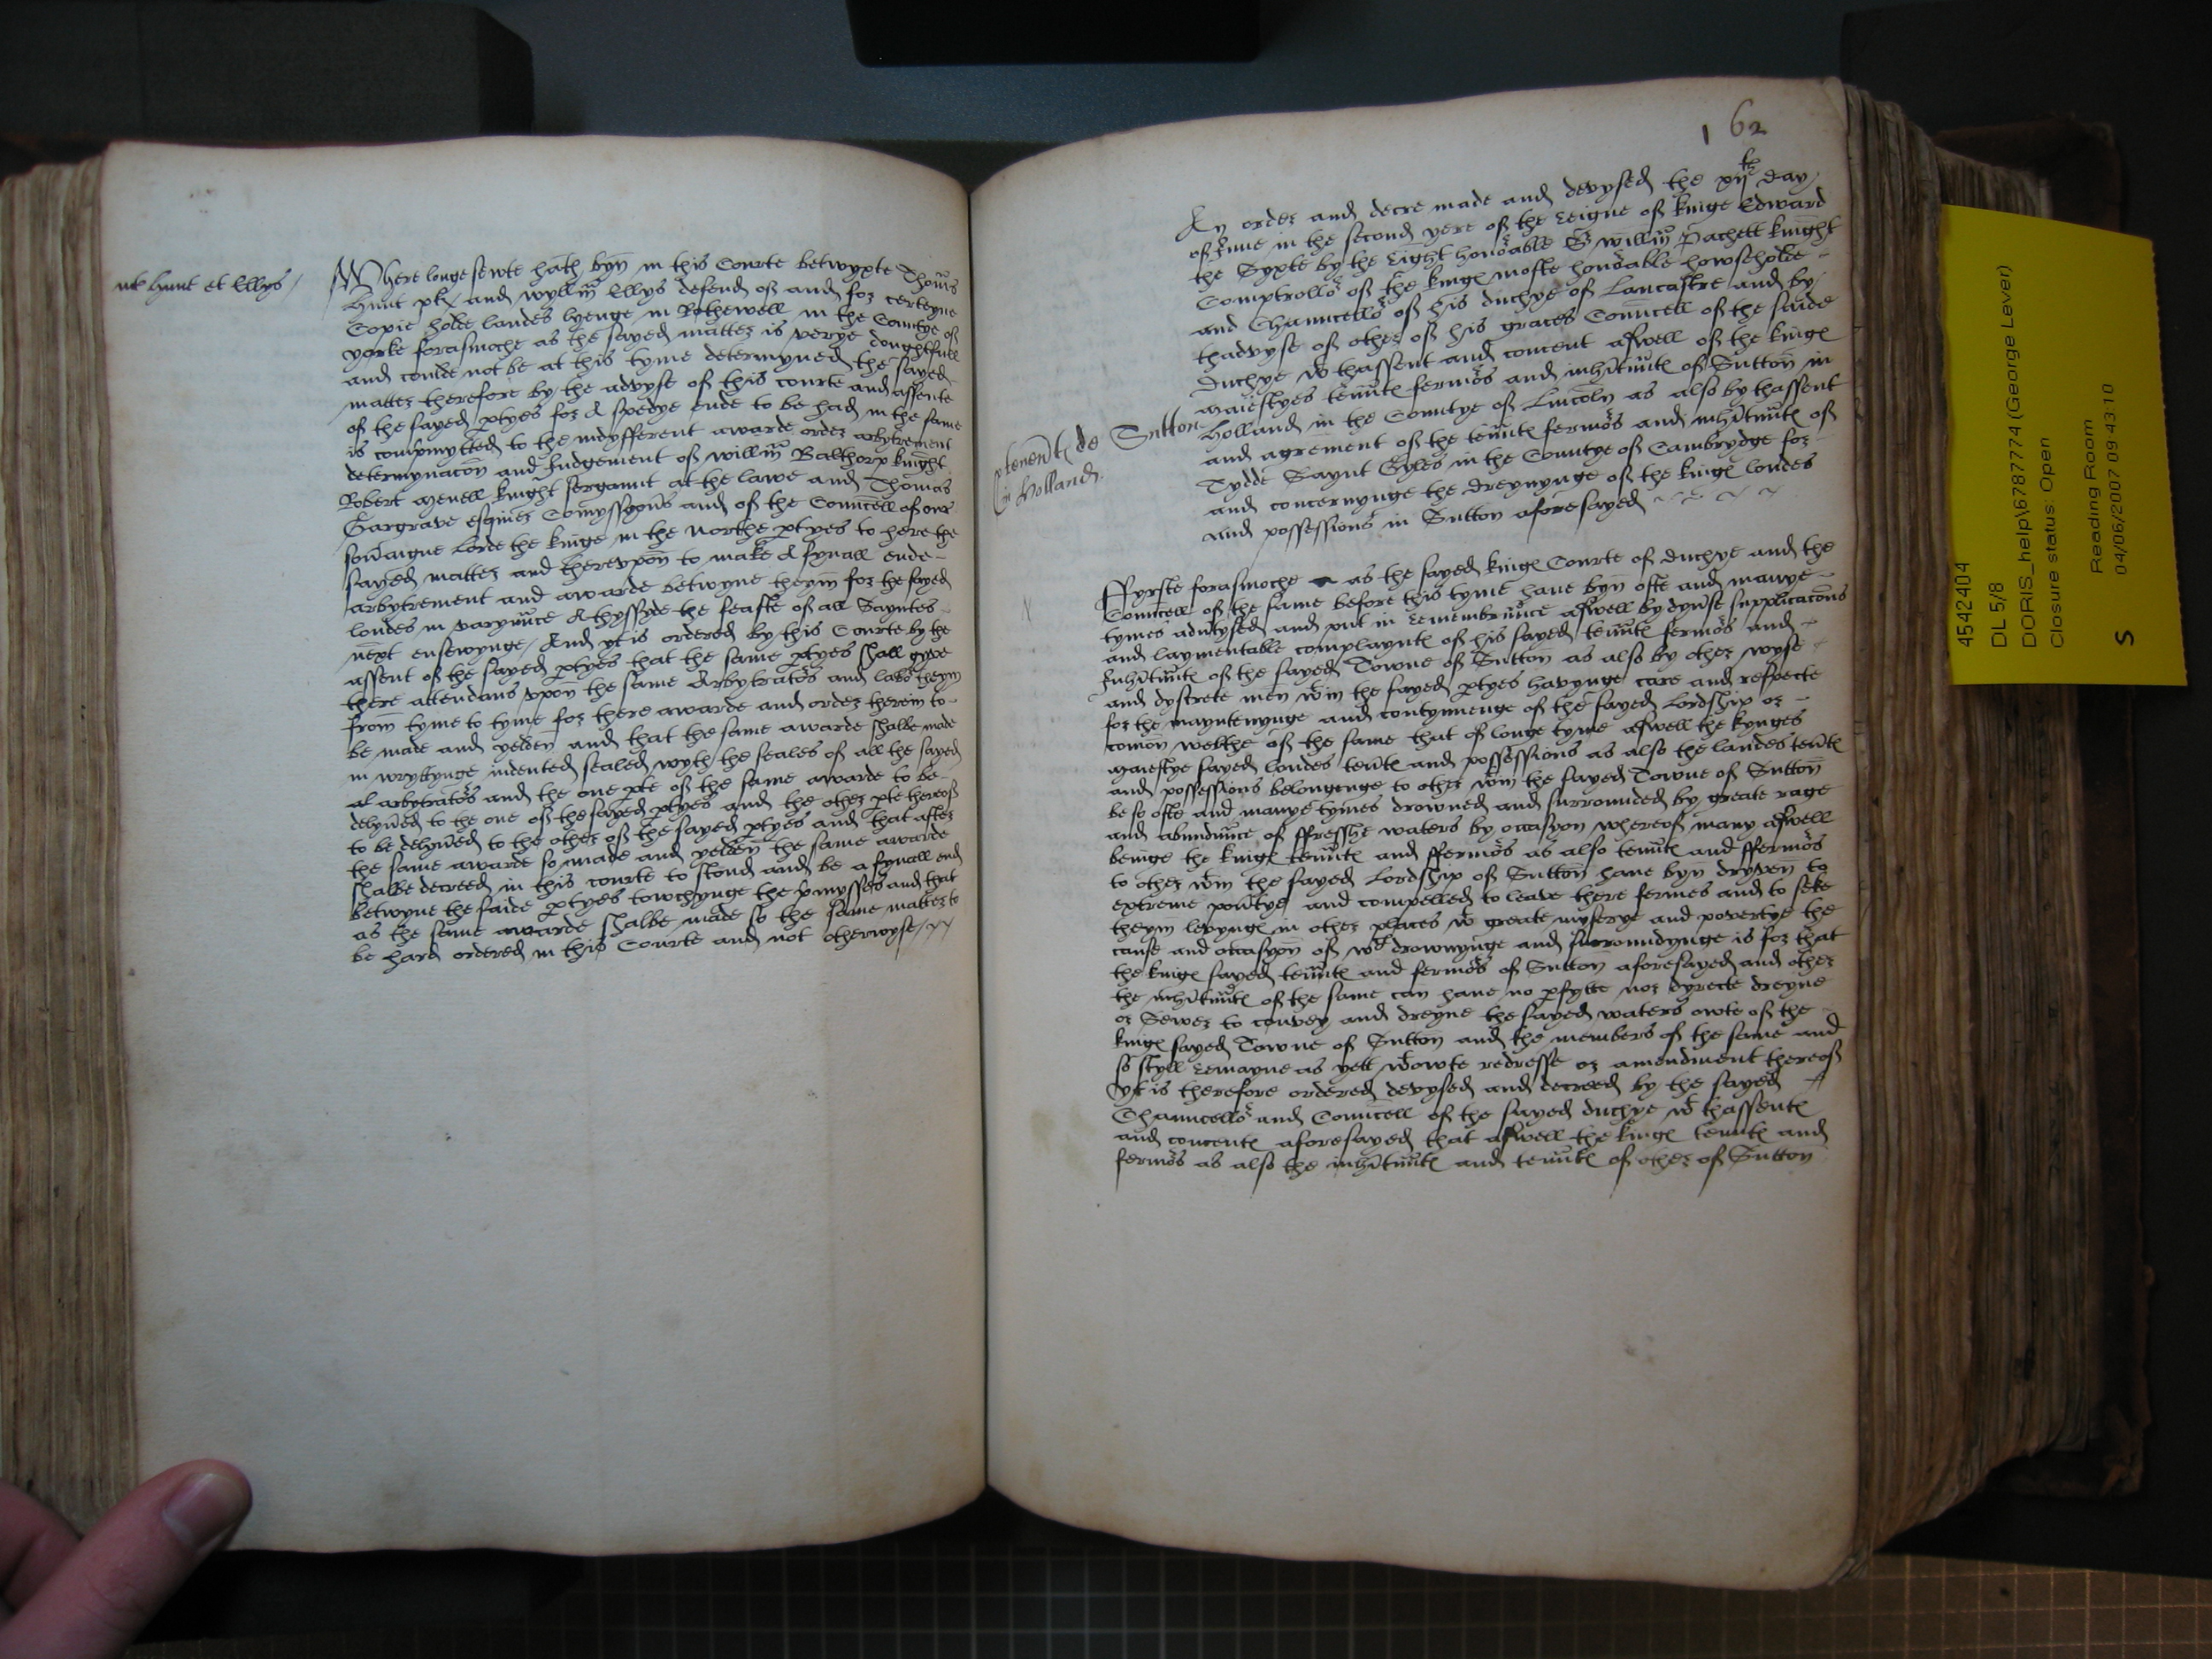 int Hunt et Ellys /
Where longe sewte hath byn in this Courte betwyxte Thoms
Hunt plt and wyllm Ellys defend of and for certeyne
Copie holde landes lyenge in Rothewell in the Countye of
yorke forasmoche as the sayed matter is verye doughtfull
and coulde not be at this tyme determyned the sayed
matter therefore by the advyse of this courte and assente
of the sayed ptyes for A spedye ende to be had in the same
is compmytted to the indyfferent awarde order arbytrement
determynacon and Judgement of willm Balthorp knight
Robert Menell knight sergaunt at the lawe and Thomas
Gargrave esquier Comyssyons and of the Councell of our
sovaigne Lorde the kinge in the Northe ptyes to here the
sayed matter and therevpon to make A fynall ende
arbytrement and awarde betwyne theym for the sayed
londes in varyunce A thyssyde the feaste of all Sayntes
next ensewynge / And yt is ordered by this Courte by the
assent of the sayed ptyes that the same ptyes shall gyve
there attendans vpon the same Arbytrators and labor theym
from tyme to tyme for there awarde and order therein to
be made and yelden and that the same awarde shalbe made
in wrytynge indented sealed wyth the seales of all the sayed
al arbytrators and the one pte of the same awarde to be
delyved to the one of the sayed ptyes and the other pte thereof
to be delyved to the other of the sayed ptyes and that after
the same awarde so made and yelden the same awarde
shalbe decreed in this courte to stond and be a fynall end
betwyne the saide ptyes towchynge the pmysses and that
as the same awarde shalbe made so the same matter to
be hard ordered in this Courte and not otherwyse /
162
An order and decre made and devysed the xijth day
of June in the second yere of the reigne of kinge Edward
the Syxte by the right honorable Sr willm Pachett knight
Comptrollor of the kings moste honorable howseholde
and Chauncellor of his duchye of Lancastre and by
thadvyse of other of his graces Councell of the saide
duchye wt thassent and concent aswell of the kings
Maiestyes tenuts fermors and inhitnuts of Sutton in
Holland in the Countye of Lincoln as also by thassent
and agrement of the tenuts fermors and inhitnuts of
Tydde Saynt Gyles in the Countye of Cambrydge for
and concernynge the dreynynge of the kings londes
and possessions in Sutton aforesayed
tenents de Sutton
in Holland.
Fyrste forasmoche as the sayed kings Courte of duchye and the
Councell of the same before this tyme haue byn ofte and manye
tymes advtysed and put in remembrunce aswell by dyvse supplicacons
and laymentable complaynts of his sayed tenuts fermors and
Inhitnuts of the sayed Towne of Sutton as also by other wyse
and dyscrete men wtin the sayed ptyes havynge care and respecte
for the mayntenynge and contynuenge of the sayed Lordship or
comon welthe of the same that of longe tyme aswell the kynges
Maiestye sayed londes tents and possessions as also the landes tents
and possessions belongenge to other wtin the sayed Towne of Sutton
be so ofte and manye tymes drowned and surrounded by greate rage
and abundnuce of ffresshe waters by occasyon whereof many aswell
beinge the kings tenuts and ffermors as also tenuts and ffermors
to other wtin the sayed Lordship of Sutton haue byn dryven to
extreme povtye and compelled to leave there fermes and to seke
theym levyngs in other places wt greate myserye and povertye the
cause and occasyon of wch drownynge and surroundynge is for that
the kings sayed tenuts and fermors of Sutton aforesayed and other
the inhitnuts of the same can haue no pfytte nor dyrecte dreyne
or Sewer to convey and dreyne the sayed waters owte of the
kings sayed Towne of Sutton and the members of the same and
so styll remayne as yett wtowte redresse or amendment thereof
Yt is therefore ordered devysed and decreed by the sayed
Chauncellor and Councell of the sayed duchye wt thassents
and concents aforesayed that aswell the kings tenuts and
fermors as also the inhitnuts and tenuts of other of Sutton
4542404
DL 5/8
DORIS_help\6787774 (George Lever)
Closure status: Open
Reading Room
S 04/06/2007 09:43:10